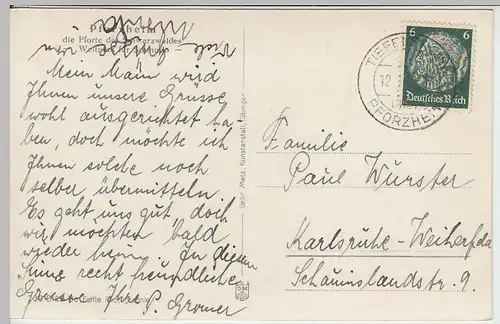 Pforzheim
die Pforte des Schwarzwaldes
Mein Mann wird
Ihnen unsere Grüsse
wohl ausgerichtet ha
ben, doch möchte ich
Ihnen solche noch
selber übermitteln
Es geht uns gut, doch
wir möchten bald
wieder heim. In diesem
Sinne recht freundliche
Grüsse Ihre P. Gromer
Gebr. Metz, Kunstanstalt, Tübingen
TIEFEN
12
PFORZHEIM
6 6
Deutsches Reich
Familie
Paul Wurster
Karlsruhe-Weiherfeld
Schauinslandstr. 9.